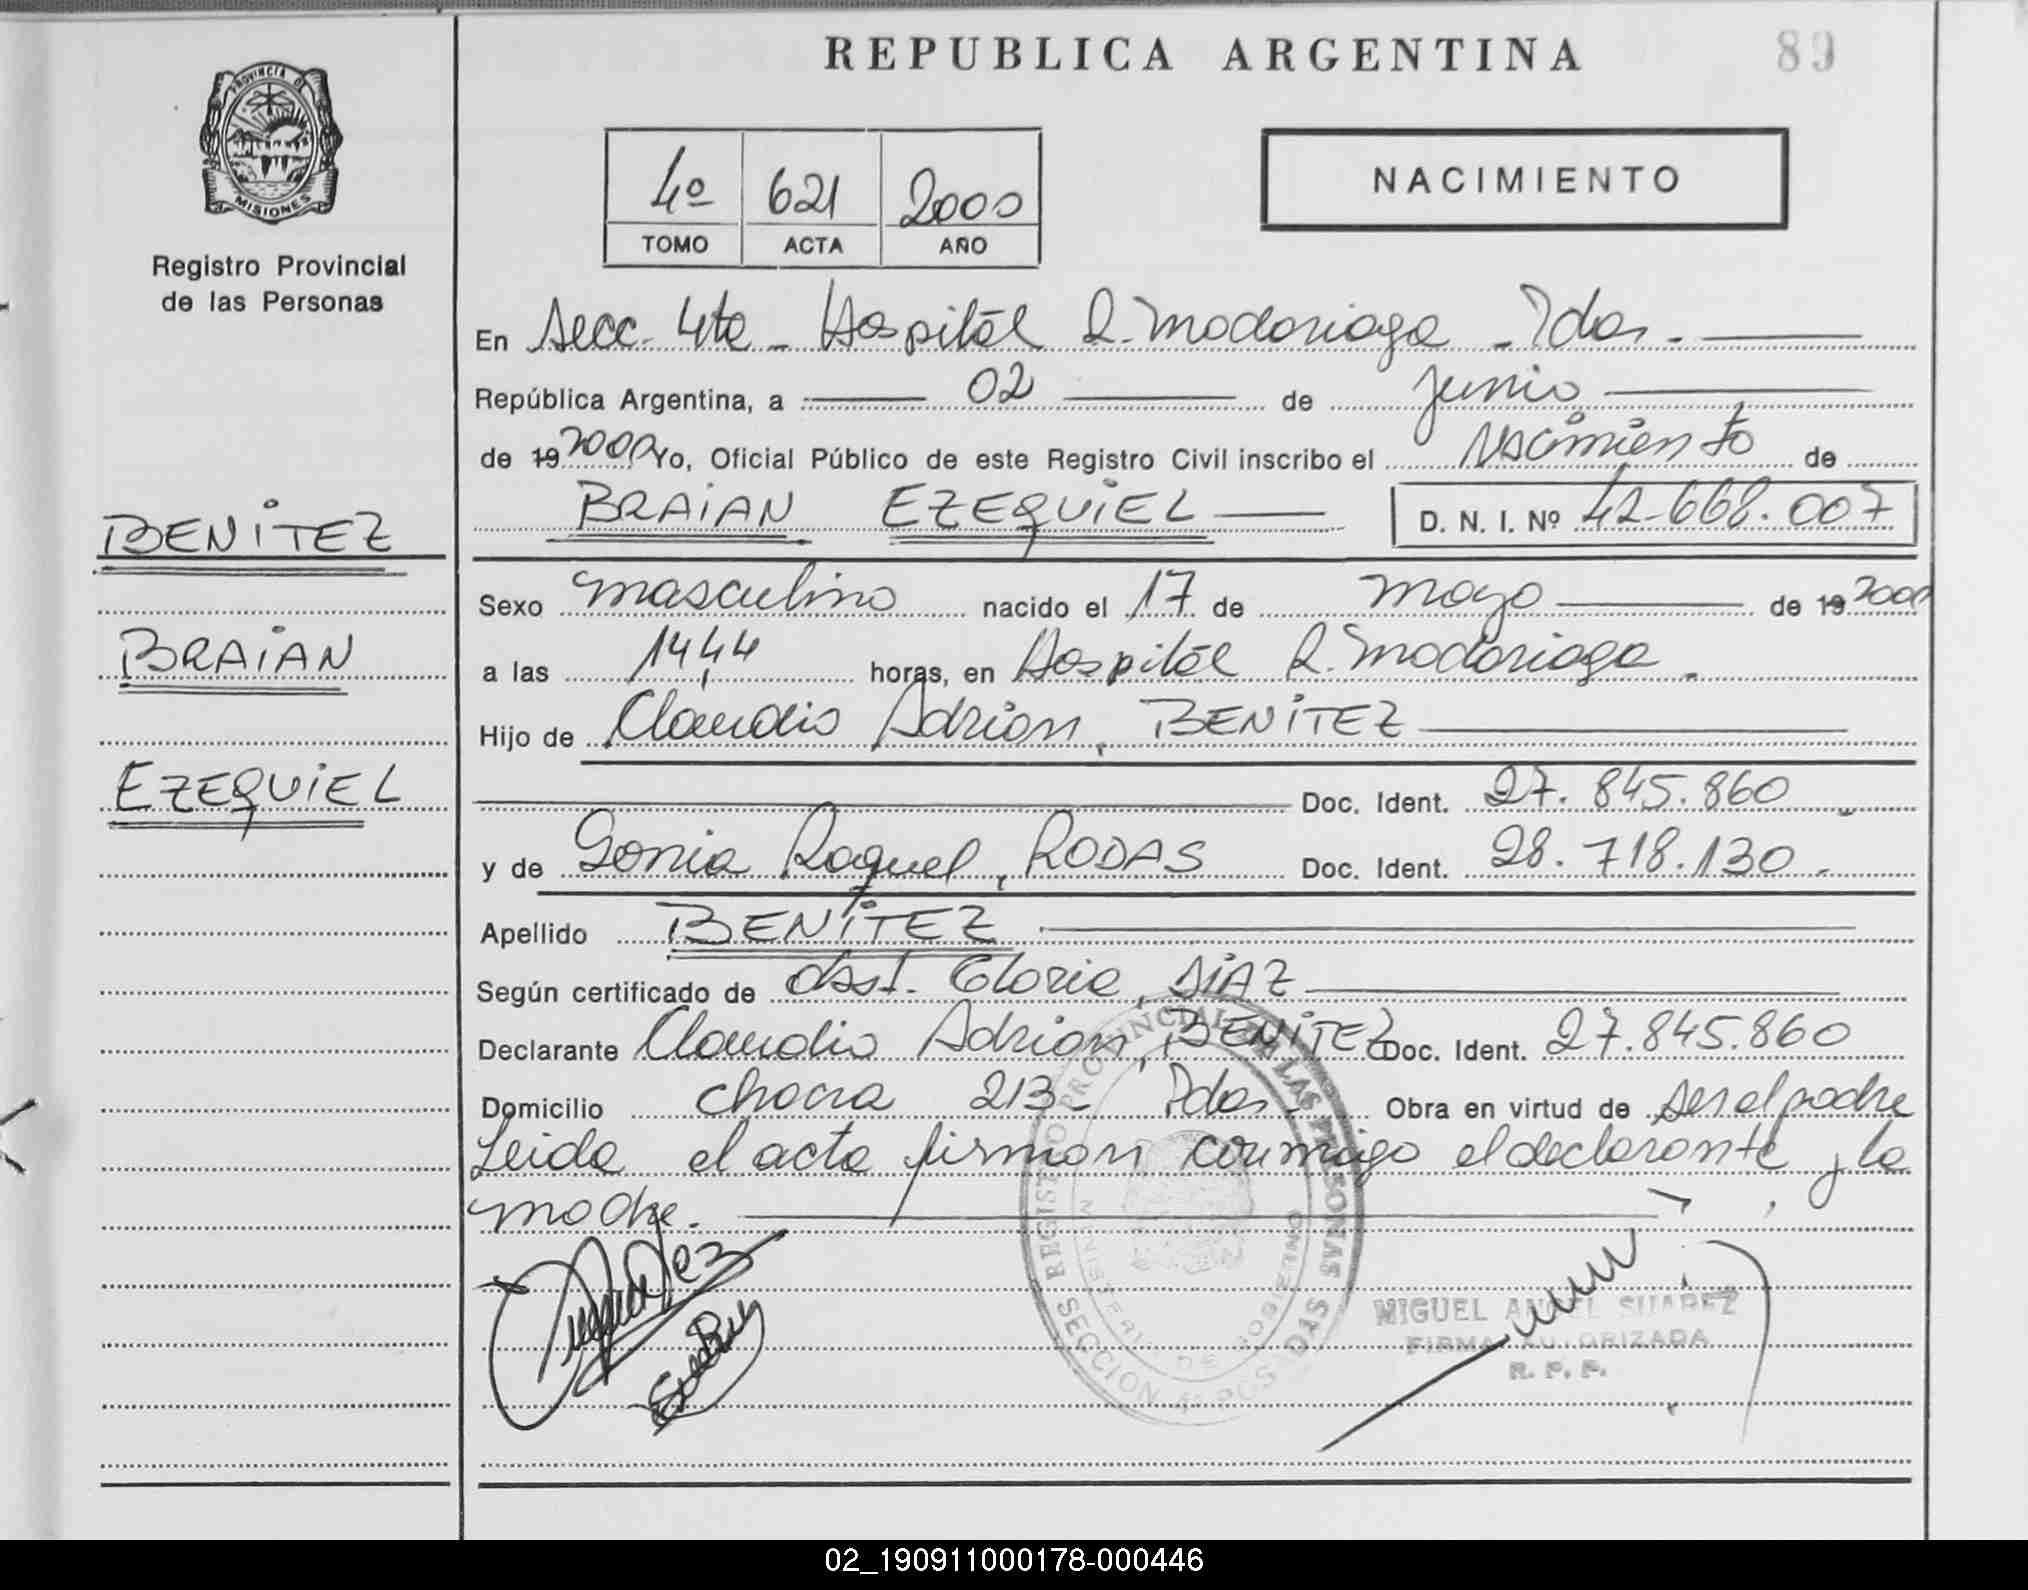 REPUBLICA ARGENTINA
89
PROVINCIA DE
MISIONES
Registro Provincial
de las Personas
4º 621 2000
TOMO ACTA AÑO
NACIMIENTO
En Secc. 4ta - Hospitál R. Madariaga - Pdas. -
República Argentina, a 02 de Junio
de 19 2000 Yo, Oficial Público de este Registro Civil inscribo el Nacimiento de
BRAIAN EZEQUIEL D. N. I. Nº 42.668.007
BENITEZ
BRAIAN
EZEQUIEL
Sexo masculino nacido el 17 de mayo de 19 2000
a las 14,44 horas, en Hospitál R. Madariaga.
Hijo de Claudio Adrian, BENITEZ
Doc. Ident. 27.845.860
y de Sonia Raquel, RODAS Doc. Ident. 28.718.130.
Apellido BENITEZ
Según certificado de Obst. Gloria, DIAZ
Declarante Claudio Adrian, BENITEZ Doc. Ident. 27.845.860
Domicilio chacra 213 - Pdas. Obra en virtud de ser el padre
Leida el acta firman conmigo el declarante y la
madre.
REGISTRO PROVINCIAL DE LAS PERSONAS
MINISTERIO DE GOBIERNO
SECCION 4ª POSADAS
MIGUEL ANGEL SUAREZ
FIRMA AUTORIZADA
R. P. P.
02_190911000178-000446